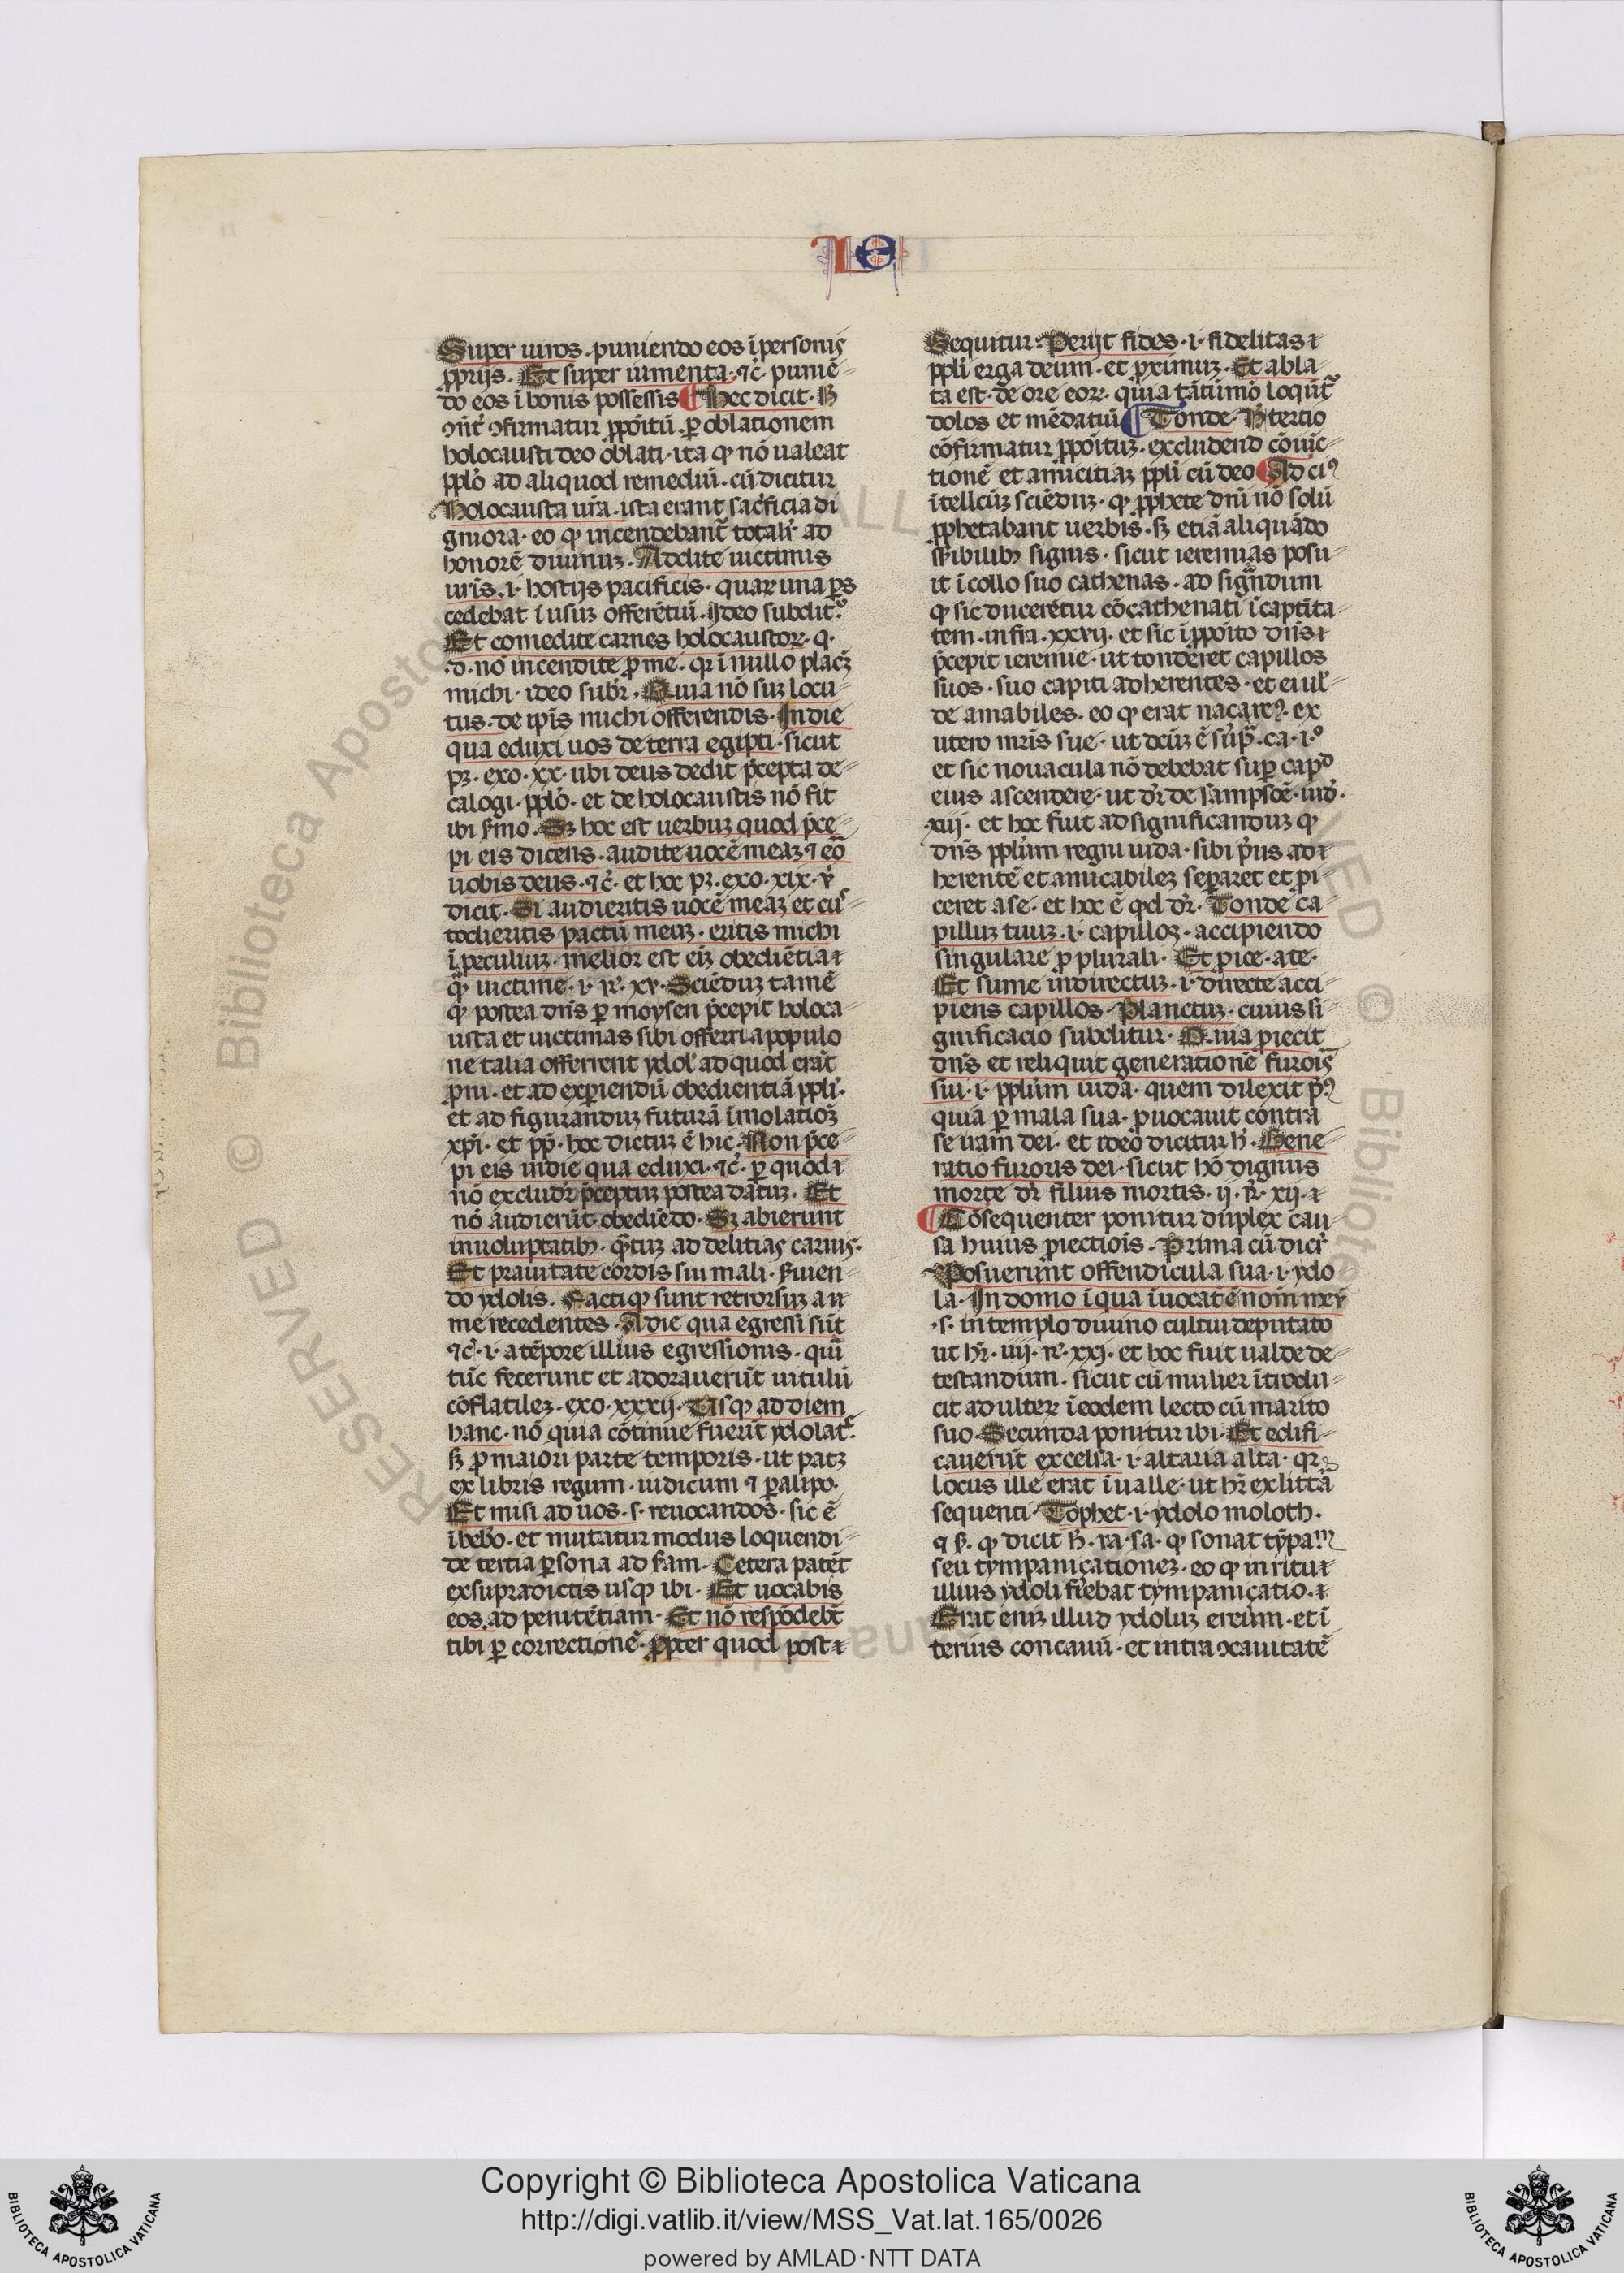 Ie
Super uiros. puniendo eos ī personis
ꝓprijs. Et super iumenta. ⁊c̄. puniē-
do eos ī bonis possessis ¶ Hec dicit. h̓
ꝯn̄t̓ ꝯfirmatur ꝓpōitū. ꝑ oblationem
holocausti deo oblati. ita ꝙ nō ualeat
ppl̓o ad aliquod remediū. cū dicitur
Holocausta ur̄a. ista erant sac̓ficia di
gniora. eo ꝙ incendebant̄ total̓r ad
honorē diuinuꝫ. Addite uictimis
uris. i. hostijs pacificis. quaꝝ una ꝑs
cedebat ī usuꝫ offerētiū. Ideo subdit᷑.
Et comedite carnes holocaustoꝝ. q.
.d. nō incendite ꝓ me. qꝛ ī nullo placꝫ
michi. ideo subr̄. Quia nō suꝫ locu-
tus. de ip̄is michi offerendis. In die
qua eduxi uos de terra egipti. sicut
pꝫ. exo. xx. ubi deus dedit p̄cepta de-
calogi. ppl̓o. et de holocaustis nō fit
ibi ẜmo. Sꝫ hoc est uerbuꝫ quod p̄ce-
pi eis dicens. audite uocē meaꝫ ⁊ eō
uobis deus. ⁊c̄. et hoc pꝫ. exo. xix. ū
dicit. Si audieritis uocē meaꝫ et cus
todieritis pactū meuꝫ. eritis michi
ī peculiuꝫ. melior est eīꝫ obediētia
ꝙ̄ uictime. i. rͤ. xv. Sciēduꝫ tamē
ꝙ postea dn̄s ꝑ moysen p̄cepit holoca-
usta et uictimas sibi offerri a populo
ne talia offerrent ydol̓ ad quod erāt
ꝓni. et ad exꝑiendū obedientiā ppl̓i.
et ad figuranduꝫ futurā īmolatioꝫ
xp̄i. et pp̄. hoc dictuꝫ ē hic. Non p̄ce-
pi eis in die qua eduxi. ⁊c̄. ꝑ quod
nō excludr̄ p̄ceptuꝫ postea datuꝫ. Et
nō audierūt. obediēdo. Sꝫ abierunt
in uoluptatibꝫ. q̄tuꝫ ad delitias carnis.
Et prauitate cordis sui mali. ẜuien-
do ydolis. Factiqꝫ sunt retrorsuꝫ a
me recedentes. A die qua egressi sūt
⁊c̄. i. a tēpore illius egressionis. quī
tūc fecerunt et adorauerūt uitulū
cōflatileꝫ. exo. xxxij. Usqꝫ ad diem
hanc. nō quia cōtinue fuerīt ydolat᷑.
ẜꝫ ꝓ maiori parte temporis. ut patꝫ
ex libris regum. iudicum ⁊ ꝑalipo.
Et misi ad uos. s. reuocandos. sic ē
ī heb̓o. et mutatur modus loquendi-
de tertia ꝑsona ad ẜam. Cetera patēt
ex supradictis usqꝫ ibi. Et uocabis
eos. ad penitētiam. Et nō respōdebt̄
tibi ꝑ correctionē. ꝓpter quod post
Sequitur. Perijt fides. i. fidelitas
ppl̓i erga deum. et ꝓximuꝫ. Et abla-
ta est. de ore eoꝝ. quia tātūmō loqūt᷑
dolos et mēdatiū ¶ Tonde. h̓ tertio
cōfirmatur ꝓpōituꝫ. excludendo cōuic-
tionē et amicitiaꝫ ppl̓i cū deo ¶ Ad cuiꝰ
ītellcūꝫ sciēduꝫ. ꝙ ꝓphete dn̄i nō solū
ꝓphetabant uerbis. sꝫ etiā aliquādo
sēsibilibꝫ signis. sicut ieremias posu-
it ī collo suo cathenas. ad sign̄dum
ꝙ sic ducerētur cōcathenati ī captīta-
tem. infra. xxvij. et sic ī ꝓpōito dn̄s
p̄cepit ieremie. ut tonderet capillos
suos. suo capiti adherentes. et ei ual̓-
de amabiles. eo ꝙ erat naçareꝰ. ex
utero mr̄is sue. ut dc̄uꝫ ē sup̄. ca. i.º
et sic nouacula nō debebat suꝑ capᵈ
eius ascendere. ut dr̄ de sampsōe. iud̓.
.xiij. et hoc fuit ad significanduꝫ ꝙ
dn̄s ppl̓m regni iuda. sibi p̓us ad
herentē et amicabileꝫ seꝑaret et ꝓi-
ceret a se. et hoc ē qd̓ dr̄. Tonde ca-
pilluꝫ tuuꝫ. i. capillos. accipiendo
singulare ꝓ plurali. Et ꝓice. a te.
Et sume in directuꝫ. i. directe acci-
piens capillos. Planctuꝫ. cuius si-
gnificacio subditur. Quia ꝓiecit
dn̄s et reliquit generationē furoīs
sui. i. ppl̓m iuda. quem dilexit pͥꝰ
quia ꝑ mala sua. ꝓuocauit contra
se iram dei. et ideo dicitur h̓. Gene-
ratio furoris dei. sicut hō dignus
morte dr̄ filius mortis. ij. rͤ. xij.
¶ Cōsequenter ponitur duplex cau-
sa huius ꝓiectiois. Prima cū dicr̄
Posuerunt offendicula sua. i. ydo
la. In domo ī qua īuocatē nom̄ meū
.s. in templo diuino cultui deputato
ut hr̄. iiij. rͤ. xxj. et hoc fuit ualde de-
testandum. sicut cū mulier ītrodu-
cit adulteꝝ ī eodem lecto cū marito
suo. Secunda ponitur ibi. Et edifi-
cauerūt excelsa. i. altaria alta. qꝛ
locus ille erat ī ualle. ut hr̄ ex litt̄a
sequenti. Tophet. i. ydolo moloth.
ꝙ dicit h̓. ra. sa. ꝙ sonat tȳpaᵐ
seu tympaniçationeꝫ. eo ꝙ in ritu
illius ydoli fiebat tympaniçatio.
Erat eniꝫ illud ydoluꝫ ereum. et ī
terius concauū. et intra ꝯcauitatē
Copyright © Biblioteca Apostolica Vaticana
http://digi.vatlib.it/view/MSS_Vat.lat.165/0026
powered by AMLAD·NTT DATA
BIBLIOTECA APOSTOLICA VATICANA
BIBLIOTECA APOSTOLICA VATICANA